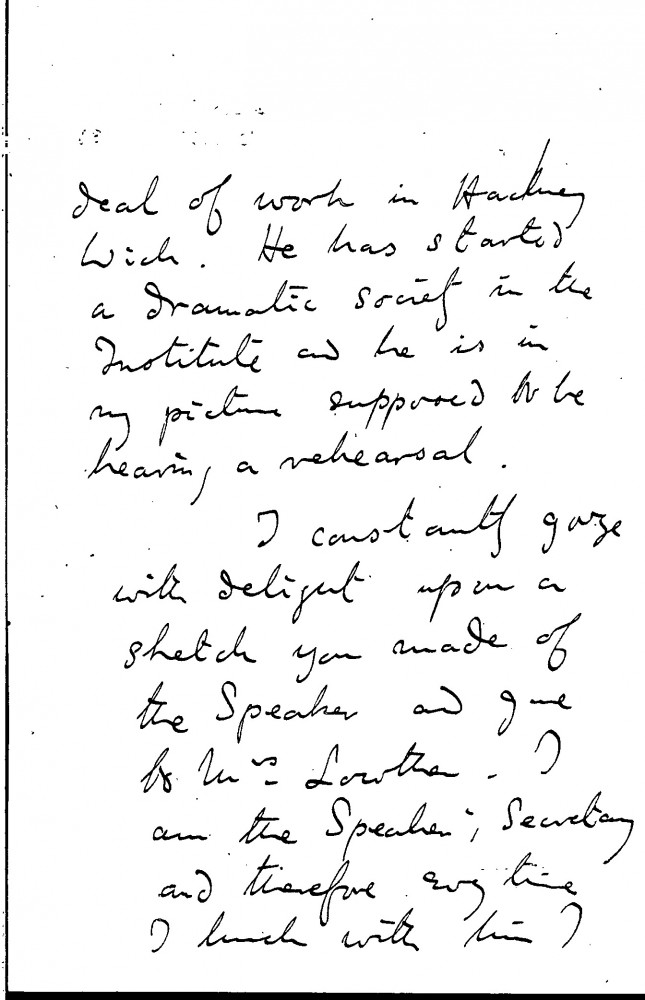 deal of work in Hackney
Wick. He has started
a dramatic society in the
Institute and he is in
my picture supposed to be
hearing a rehearsal.
I constantly gaze
with delight upon a
sketch you made of
the Speaker and gave
to Mrs Lowther. I
am the Speaker's Secretary
and therefore every time
I lunch with him I